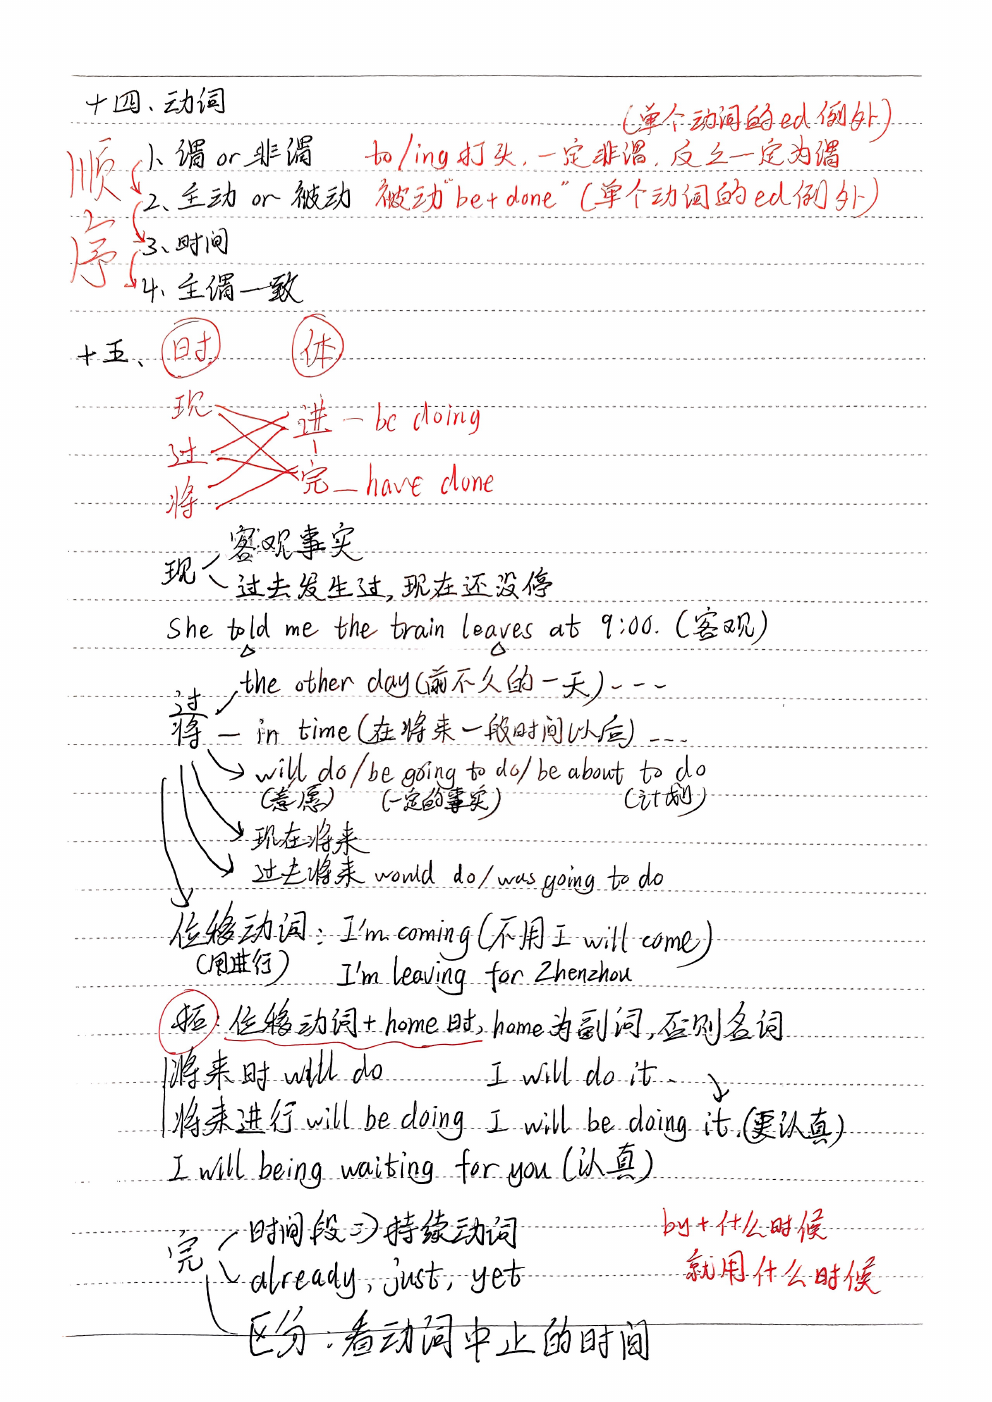 十四、动词
(单个动词的ed例外)
1、谓 or 非谓 to/ing打头,一定非谓,反之一定为谓
2、主动 or 被动 被动"be+done"(单个动词的ed例外)
顺序
3、时间
4、主谓一致
十五、时 体
现 进 — be doing
过
将 完 — have done
现 客观事实
过去发生过,现在还没停
She told me the train leaves at 9:00.(客观)
过 the other day(前不久的一天)---
将 — in time(在将来一段时间以后)---
will do/be going to do/be about to do
(意愿) (一定的事实) (计划)
现在将来
过去将来 would do/was going to do
位移动词: I'm coming(不用I will come)
(用进行) I'm leaving for Zhenzhou
拓:位移动词+home时,home为副词,否则名词
将来时 will do I will do it.
将来进行 will be doing I will be doing it.(更认真)
I will being waiting for you(认真)
完 时间段=>持续动词 by+什么时候
already, just, yet 就用什么时候
区分:看动词中止的时间